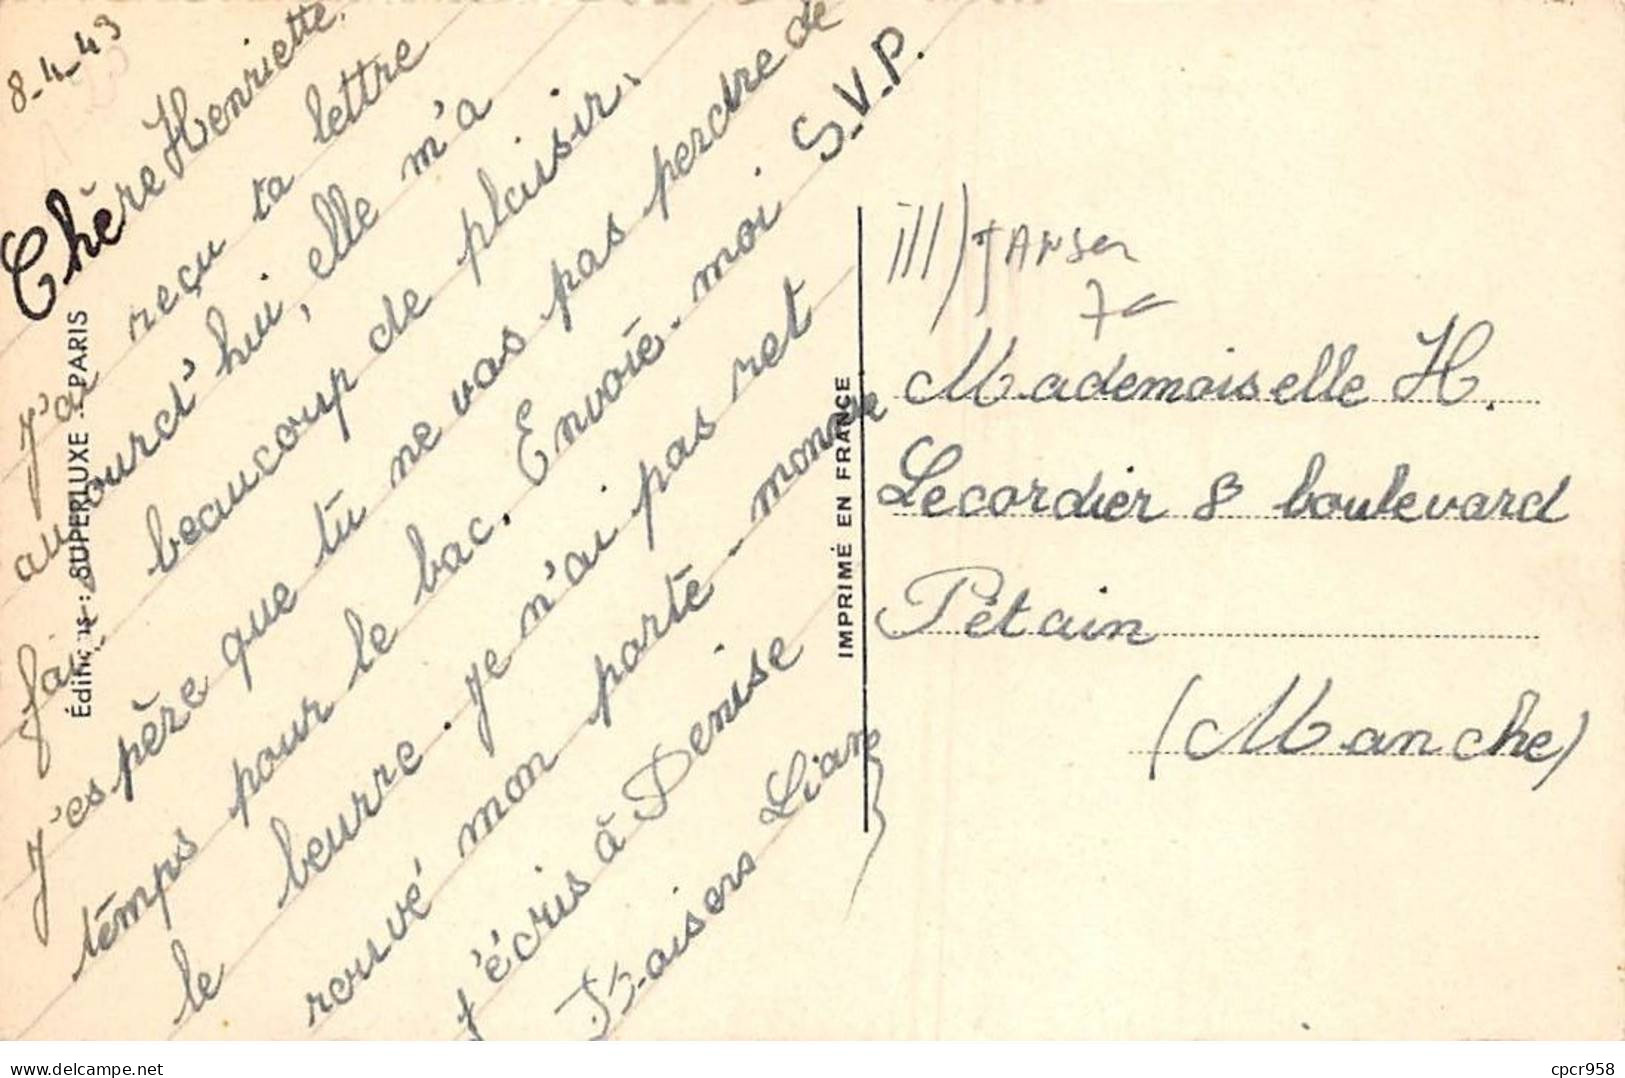 8-4-43
Chère Henriette.
J'ai reçu ta lettre
aujourd'hui, elle m'a
fait beaucoup de plaisir.
J'espère que tu ne vas pas perdre de
temps pour le bac. Envoie-moi S.V.P.
le beurre. Je n'ai pas ret
rouvé mon porte-monnaie
J'écris à Denise
Baisers Liane
Éditions : SUPERLUXE - PARIS
IMPRIMÉ EN FRANCE
ill) JANSER
Mademoiselle H.
Lecordier 8 boulevard
Pétain
(Manche)
www.delcampe.net
cpcr958